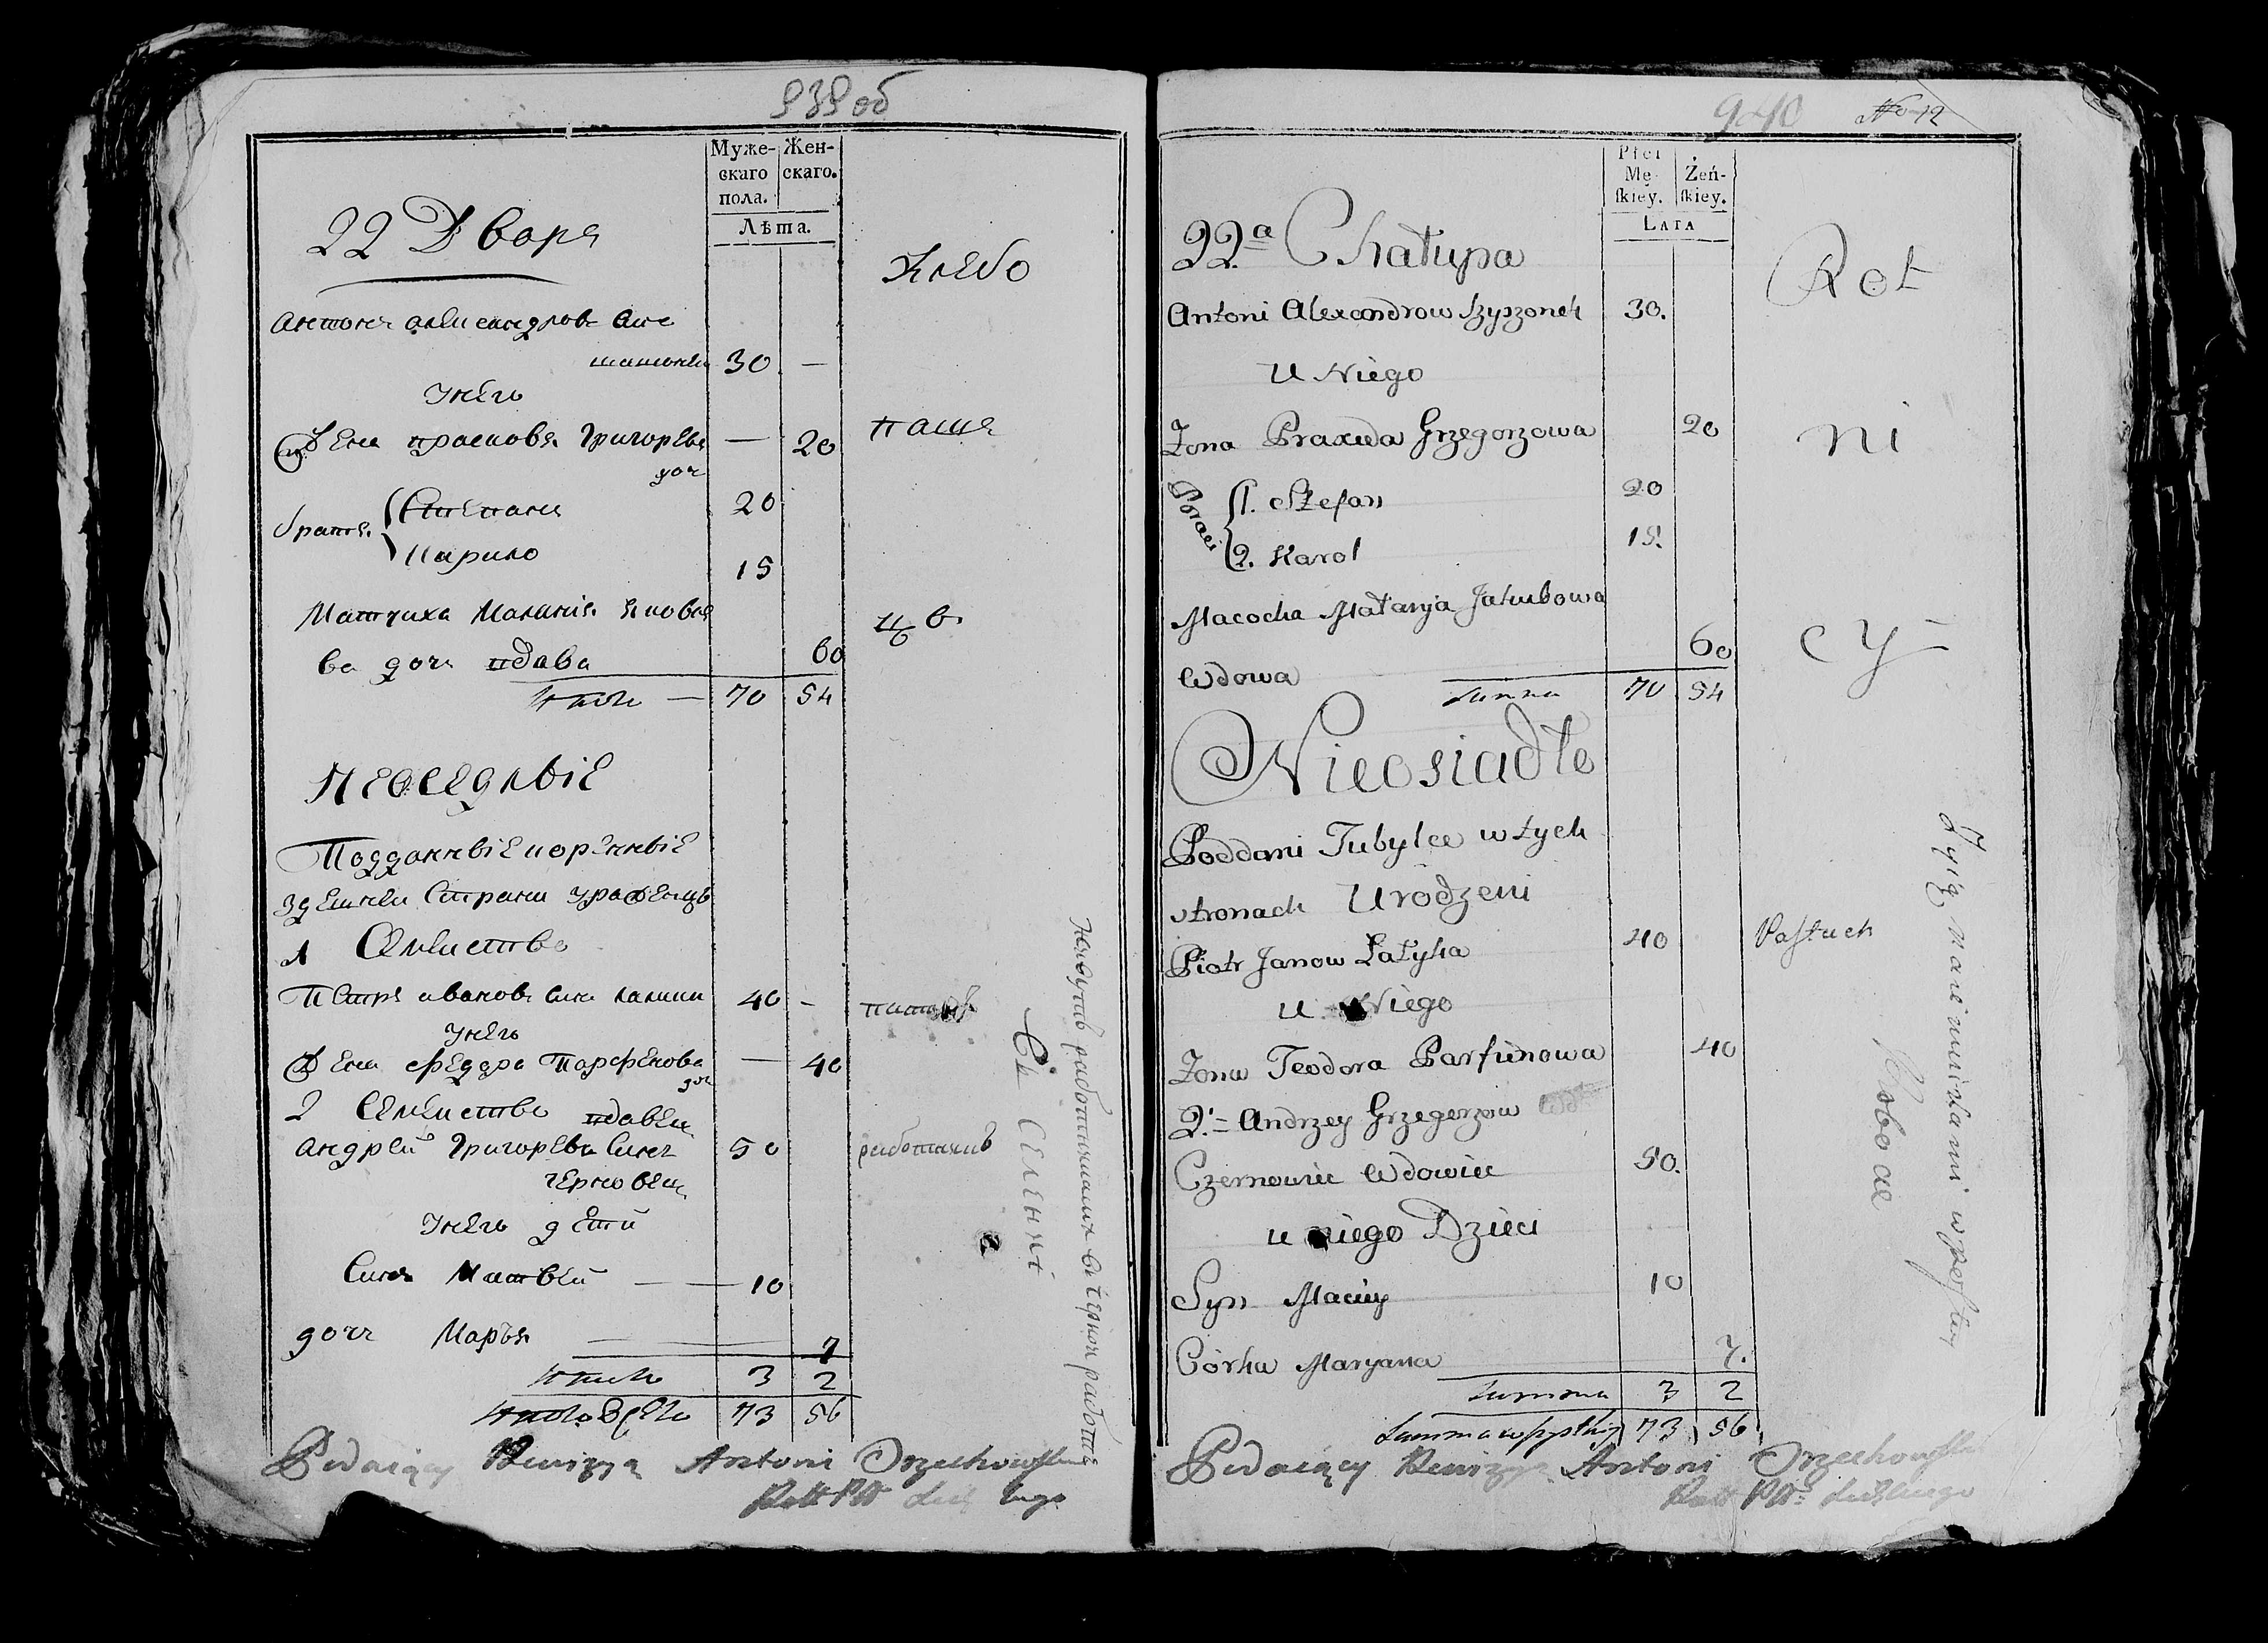 939 об
Муже-
скаго
пола.
Жен-
скаго.
Лѣта.
22 Дворъ
Хлебо
Антонъ Александровъ Сынъ
30 —
Унего
Жена прасковья Григорьева — 20
доч
паше
братья
Степанъ 20
Кирило 15
Матчиха Маланья Яковле
ва дочь вдова 60
цъ
Итого — 70 54
Неоседлые
Подданные коренные
здешней Страны Уроженцы
1 Семейство
Петръ Ивановъ Сынъ 40 -
Унего
Жена Федора Парфенова — 40
доч
2 Семейство вдовец
Андрей Григорьевъ Сынъ 50
работникъ
Унего дети
Сынъ Матвей — 10
дочь Марья — 7
Итого 3 2
Итого Всего 73 56
Въ селеніи
Podaiący Rewizyą Antoni Orzechowski
940
No 12
Płci
Mę-
skiey.
Żeń-
skiey.
Lata
22.a Chałupa
Rol
Antoni Alexandrow Szyszonek 30.
U Niego
Zona Praxeda Grzegorzowa 20
ni
Braci
1. Stefan 20
2. Karol 15.
Macocha Małanja Jakubowa
Wdowa 60
cy
Summa 70 54
Nieosiadłe
Poddani Tubylce w tych
stronach Urodzeni
Piotr Janow Łatyka 40
Pastuch
u Niego
Zona Teodora Parfinowa 40
2. Andrzey Grzegorzow
Czernowiec Wdowiec 50.
u niego Dzieci
Syn Maciey 10
Córka Maryana 7.
Summa 3 2
Summa wszystkiego 73 56
Żyią naiemnikami w
Podaiący Rewizyą Antoni Orzechowski